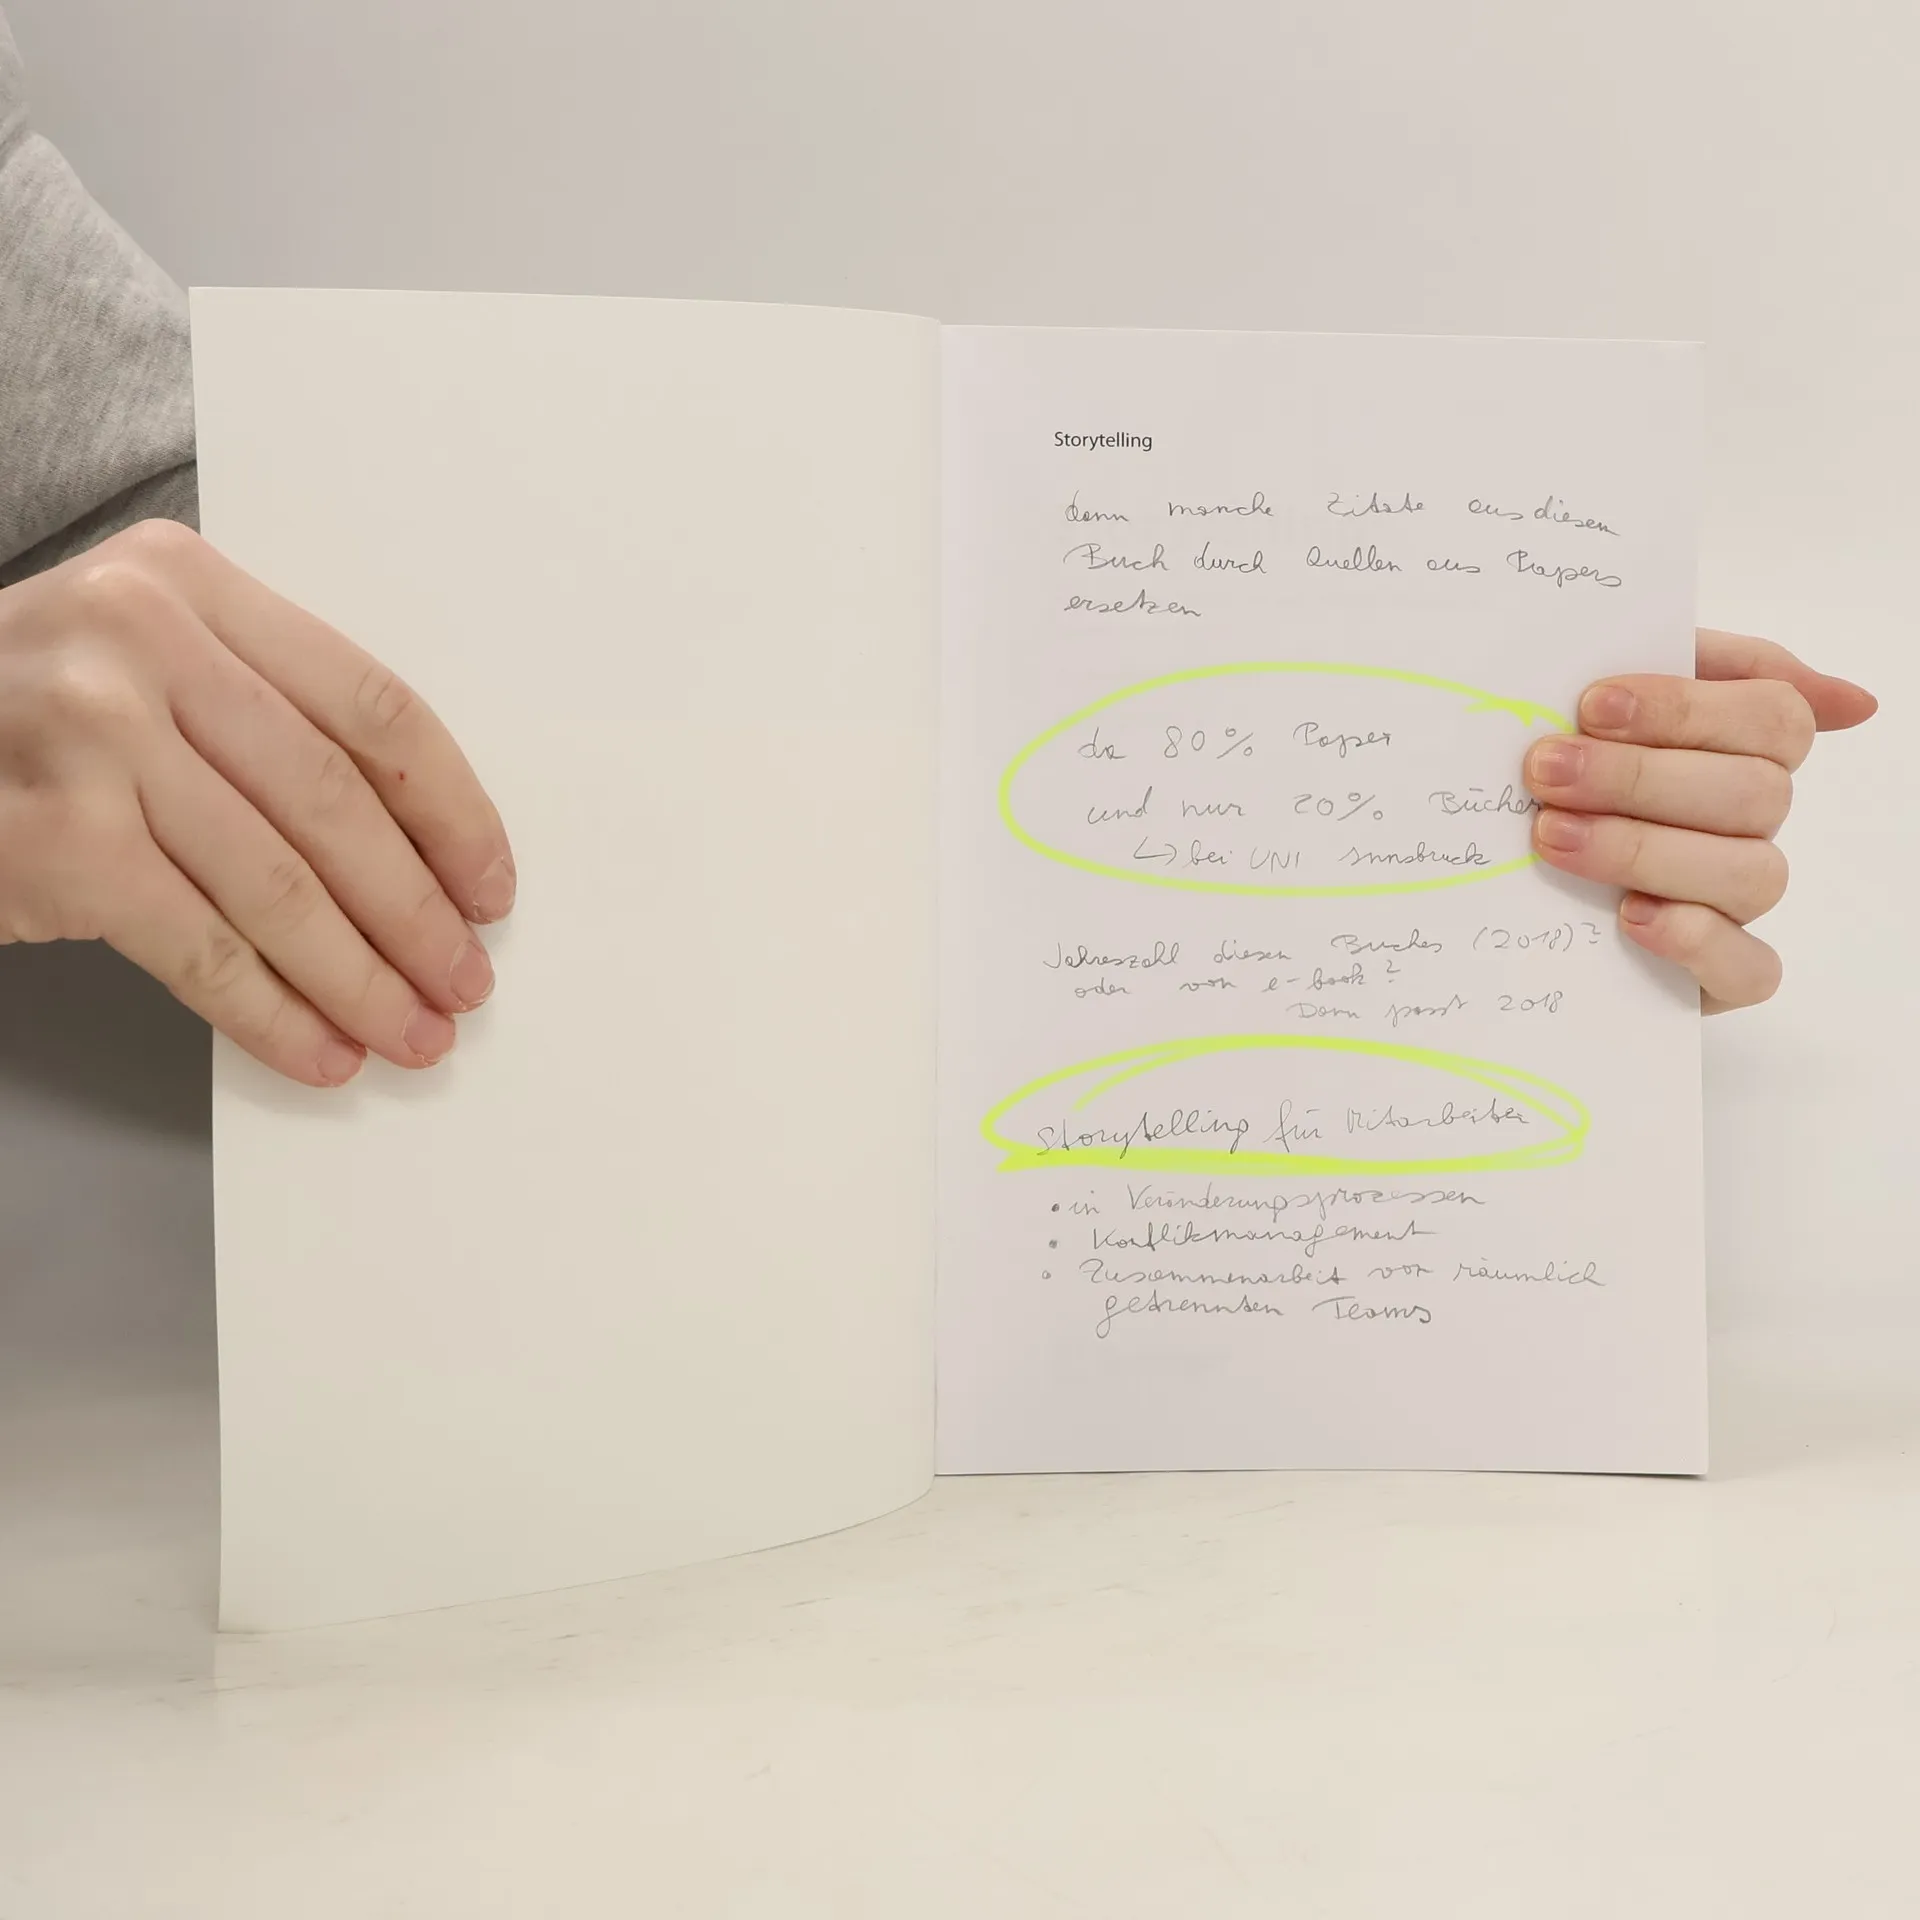 Storytelling
dann manche Zitate aus diesem
Buch durch Quellen aus Papers
ersetzen
da 80% Paper
und nur 20% Bücher
↳ bei UNI Innsbruck
Jahreszahl diesen Buches (2018)?
oder von e-book?
Dann passt 2018
Storytelling für Mitarbeiter
• in Veränderungsprozessen
• Konflikmanagement
• Zusammenarbeit von räumlich
getrennten Teams